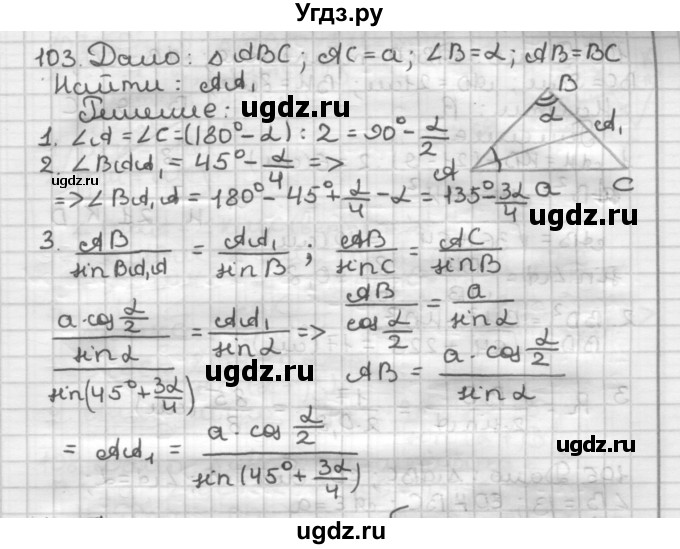 Угдз.ру
103. Дано: △ABC; AC=a; ∠B=α; AB=BC
Найти: AA₁
Решение:
1. ∠A=∠C=(180°-α):2=90°-α/2
2. ∠BAA₁=45°-α/4 =>
=>∠BA₁A=180°-45°+α/4-α=135°-3α/4
B
α
A₁
A
a
C
3. AB/sinBA₁A = AA₁/sinB; AB/sinC = AC/sinB
(a·cos α/2 / sinα)/sin(45°+3α/4) = AA₁/sinα =>
AB/cos α/2 = a/sinα
AB = a·cos α/2 / sinα
= AA₁ = a·cos α/2 / sin(45°+3α/4)
ugdz.ru
ugdz.ru
ugdz.ru
ugdz.ru
ugdz.ru
ugdz.ru
ugdz.ru
ugdz.ru
ugdz.ru